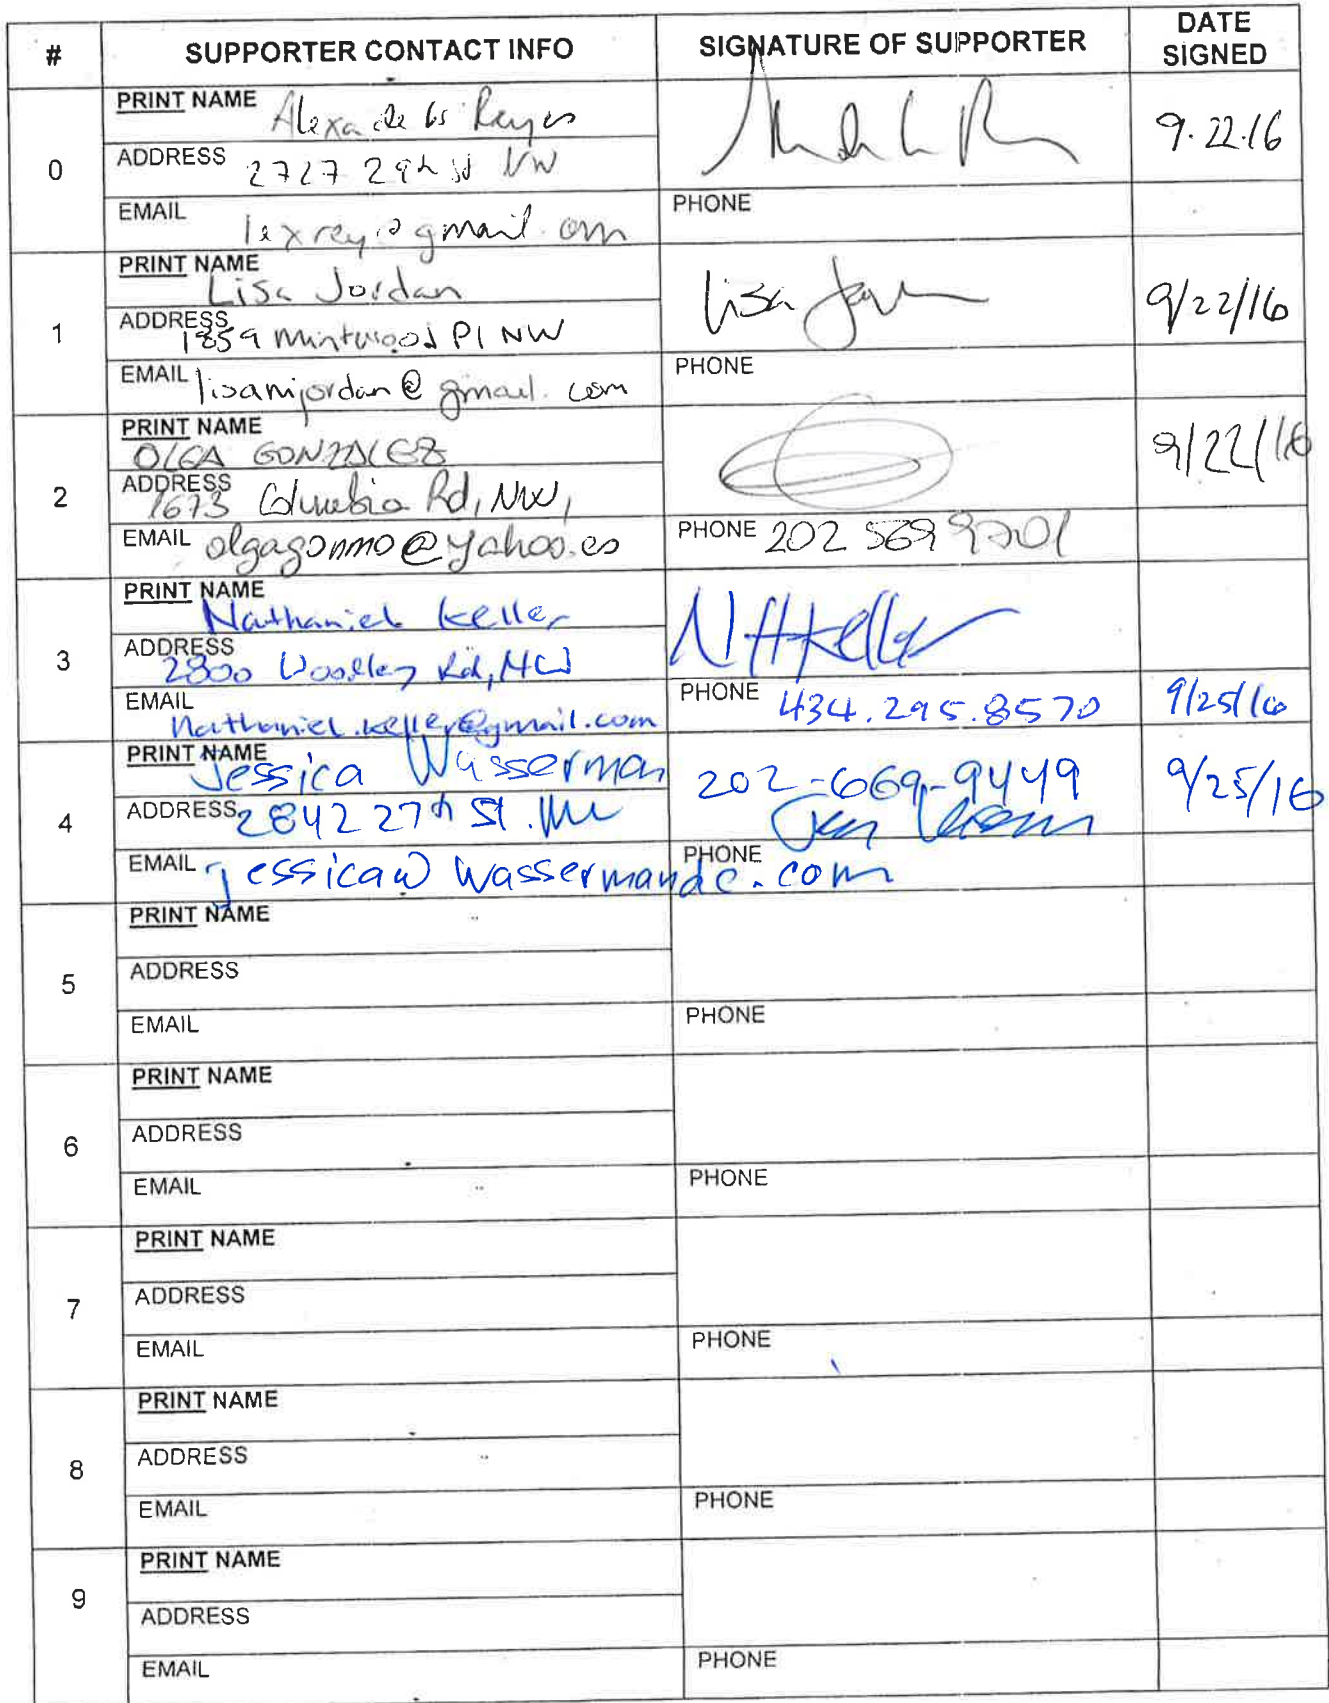 # SUPPORTER CONTACT INFO SIGNATURE OF SUPPORTER DATE SIGNED
0
PRINT NAME Alexa de los Reyes
9.22.16
ADDRESS 2727 29th St NW
EMAIL lexrey@gmail.com
PHONE
1
PRINT NAME Lisa Jordan
Lisa
9/22/16
ADDRESS 1859 Mintwood Pl NW
EMAIL lisamjordan@gmail.com
PHONE
2
PRINT NAME OLGA GONZALEZ
9/22/16
ADDRESS 1673 Columbia Rd, NW,
EMAIL olgagonmo@yahoo.es
PHONE 202 569
3
PRINT NAME Nathaniel Keller
NHKeller
ADDRESS 2800 Woodley Rd, NW
EMAIL nathaniel.keller@gmail.com
PHONE 434.295.8570
9/25/16
4
PRINT NAME Jessica Wasserman
202-669-9449
9/25/16
ADDRESS 2842 27th St. NW
EMAIL jessica@wassermandc.com
PHONE
5
PRINT NAME
ADDRESS
EMAIL
PHONE
6
PRINT NAME
ADDRESS
EMAIL
PHONE
7
PRINT NAME
ADDRESS
EMAIL
PHONE
8
PRINT NAME
ADDRESS
EMAIL
PHONE
9
PRINT NAME
ADDRESS
EMAIL
PHONE